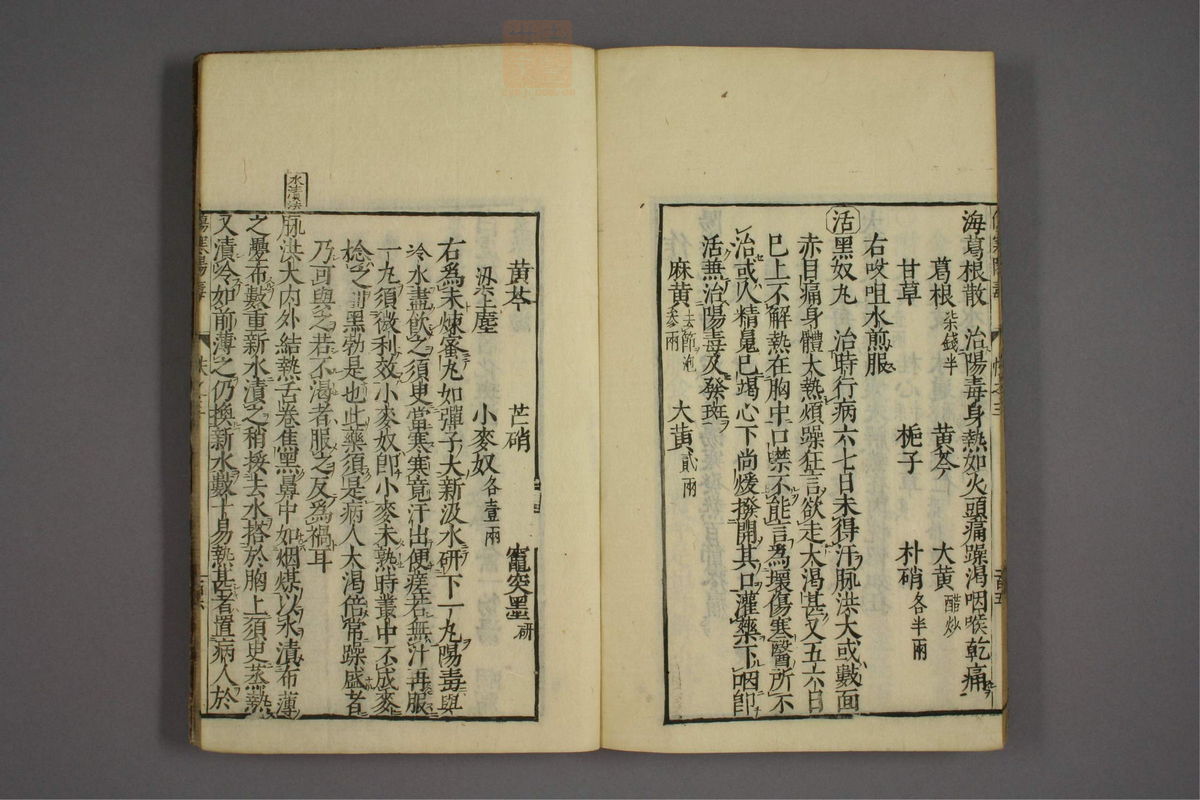 海葛根散 治陽毒身熱如火頭痛躁渴咽喉乾痛
葛根柒錢半 黄芩 大黄醋炒
甘草 梔子 朴硝各半兩
右㕮咀水煎服
活黑奴丸 治時行病六七日未得汗脉洪大或數面
赤目痛身體大熱煩躁狂言欲走大渴甚又五六日
已上不解熱在胸中口噤不能言為壞傷寒醫所不
治或人精䰟已竭心下尚煖撥開其口灌藥下咽即
活兼治陽毒及發斑
麻黄去節泡叁兩 大黄貳兩
黄芩 芒硝 竈突墨研
梁上塵 小麥奴各壹兩
右為末煉蜜丸如彈子大新汲水研下一丸陽毒與
冷水盡飲之須臾當寒寒竟汗出便瘥若無汗再服
一丸須微利效小麥奴即小麥未熟時叢中不成麥
捻之黑勃是也此藥須是病人大渴倍常躁盛者
乃可與之若不渴者服之反為禍耳
水漬法
脉洪大内外結熱舌卷焦黑鼻中如烟煤以水漬布薄
之疊布數重新水漬之稍捩去水搭於胸上須臾蒸熱
又漬冷如前薄之仍換新水數十易熱甚者置病人於